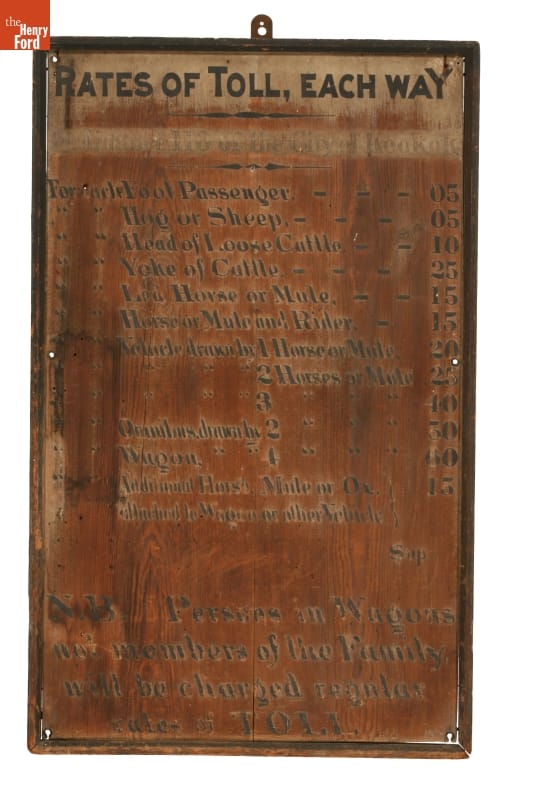 the
Henry
Ford
RATES OF TOLL, EACH WAY
Ordinance 116 of the City of Keokuk
For each Foot Passenger, – – – 05
" " Hog or Sheep, – – – – 05
" " Head of Loose Cattle, – – 10
" " Yoke of Cattle, – – – – 25
" " Led Horse or Mule, – – – 15
" " Horse or Mule and Rider, – 15
" " Vehicle drawn by 1 Horse or Mule, 20
" " " " " 2 Horses or Mule 25
" " " " " 3 " " " 40
" " Omnibus, drawn by 2 " " " 50
" " Wagon, " " 4 " " " 60
" " Additional Horse, Mule or Ox, } 15
attached to Wagon or other Vehicle }
Sup.
N.B. Persons in Wagons
not members of the Family,
will be charged regular
rates of TOLL.